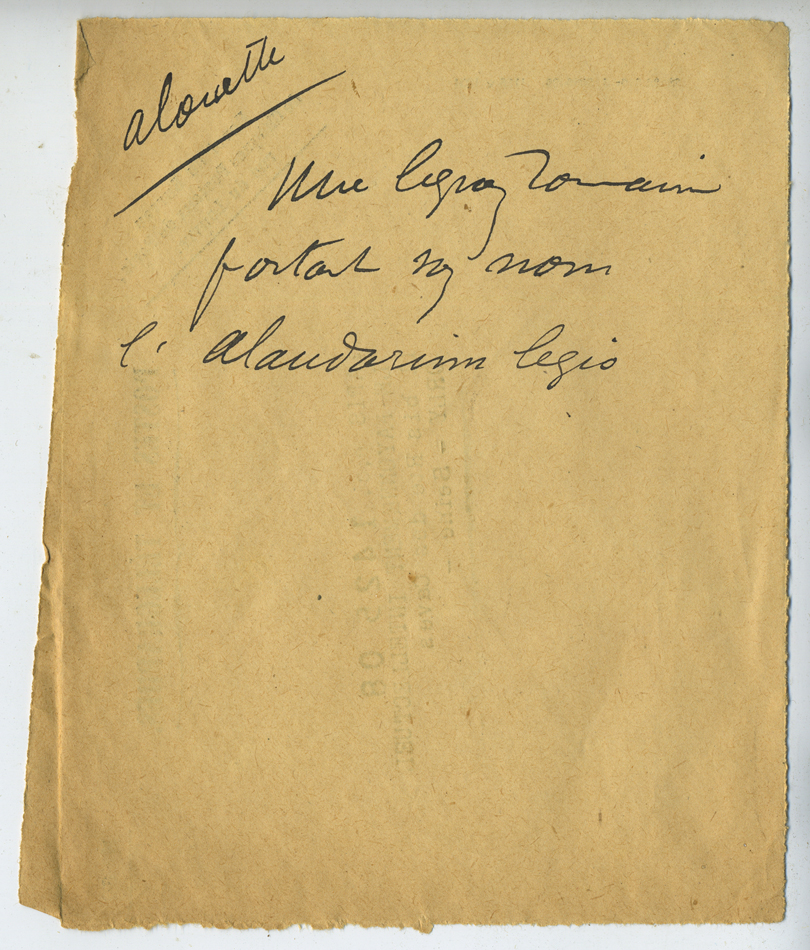 alouette
Une legion romaine
portait son nom
l'Alaudarum legio